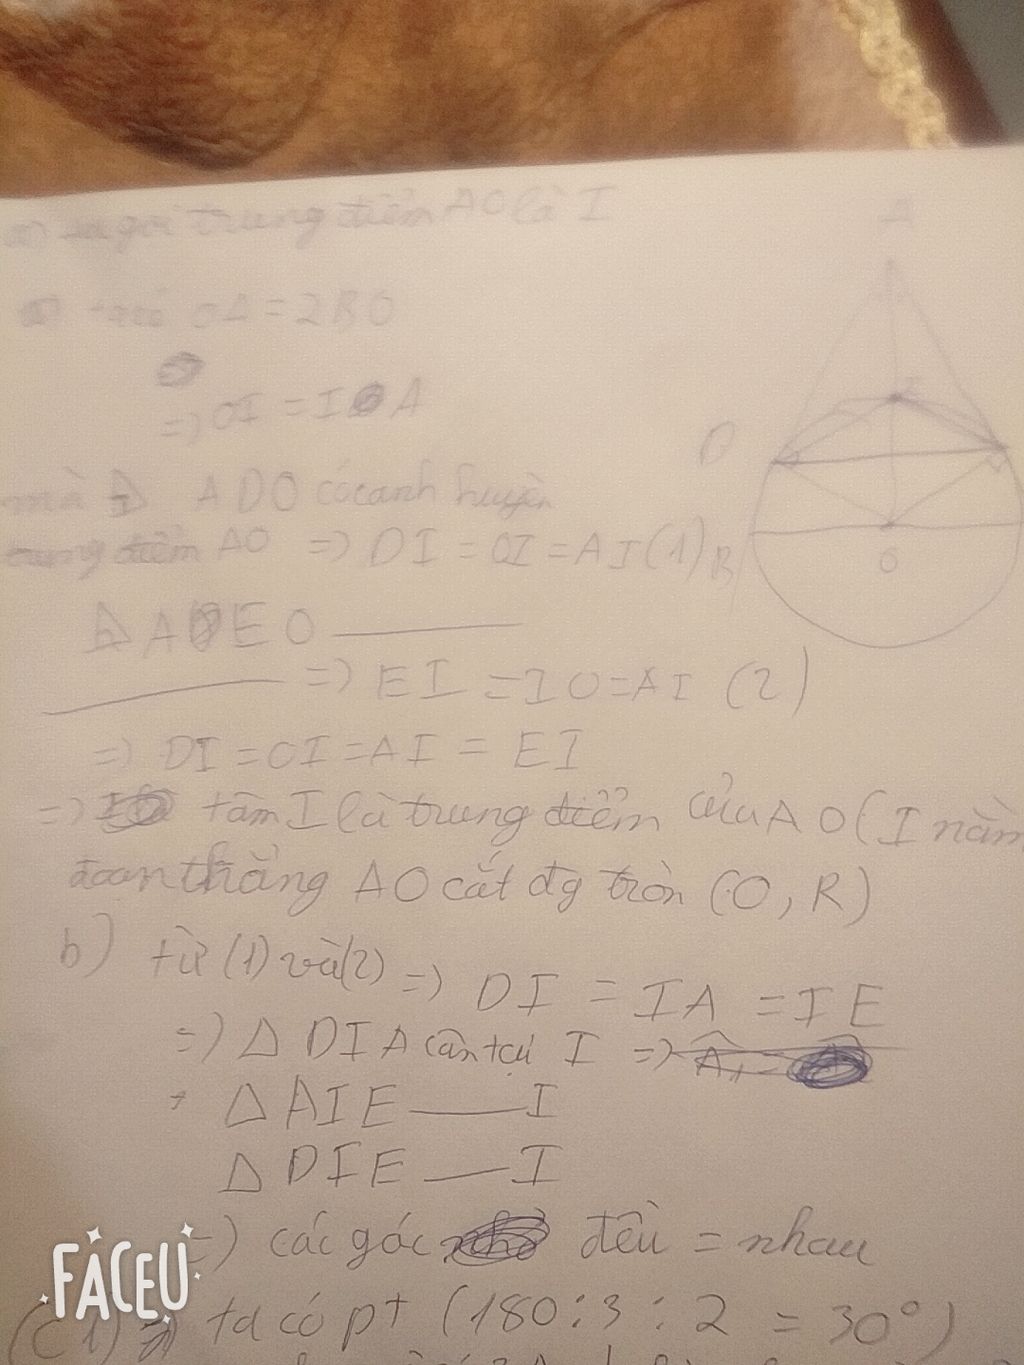 a) ta gọi trung điểm AO là I
A
ta có OA = 2BO
=> OI = I A
D
mà Δ ADO có cạnh huyền
trung điểm AO => DI = OI = AI (1)
B
O
Δ A EO ———
——— => EI = IO = AI (2)
=> DI = OI = AI = EI
=> tâm I là trung điểm của AO (I nằm
đoan thẳng AO cắt đg tròn (O, R)
b) từ (1) và (2) => DI = IA = IE
=> Δ DIA cân tại I =>
Δ AIE ——— I
Δ DIE —— I
=> các góc đều = nhau
(C1) ta có pt (180 : 3 : 2 = 30°)
FACEU